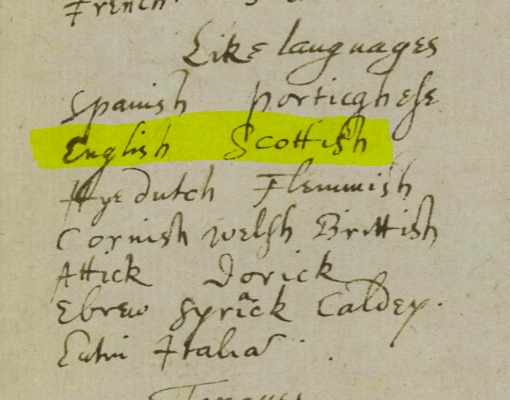 French.
Like languages
Spanish porticghese
English Scottish
Hye dutch Flemmish
Cornish welsh Brittish
Attick Dorick
Ebrew Syriack Caldey.
Latin Italia
Tongues